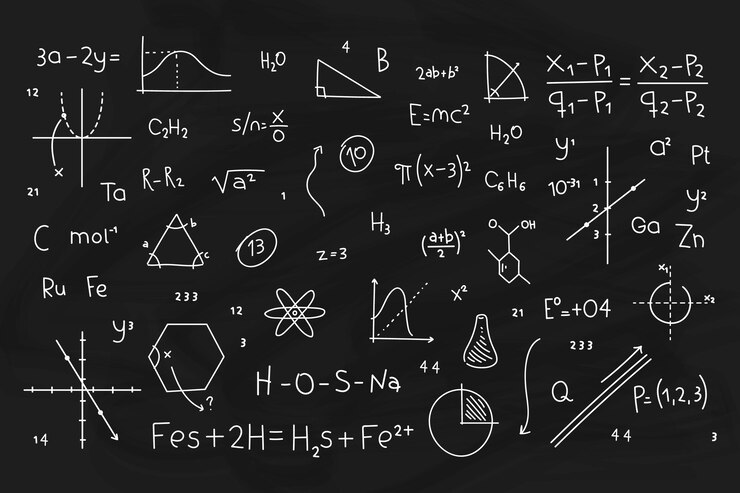 3a-2y=
H₂O
4
B
2ab+b²
x₁-P₁/q₁-P₁ = x₂-P₂/q₂-P₂
12
C₂H₂
s/n=x/o
E=mc²
H₂O
10
y¹
a²
Pt
x
21
Ta
R-R₂
√a²
1
π(x-3)²
C₆H₆
10⁻³¹
1
2
3
y²
C mol⁻¹
a
b
c
13
z=3
H₃
(a+b/2)²
O
OH
Ga
Zn
Ru Fe
233
12
x²
21
E°=+04
x₁
x₂
y³
x
?
3
44
233
H-O-S-Na
Q
P=(1,2,3)
14
Fes+2H=H₂s+Fe²⁺
44
3